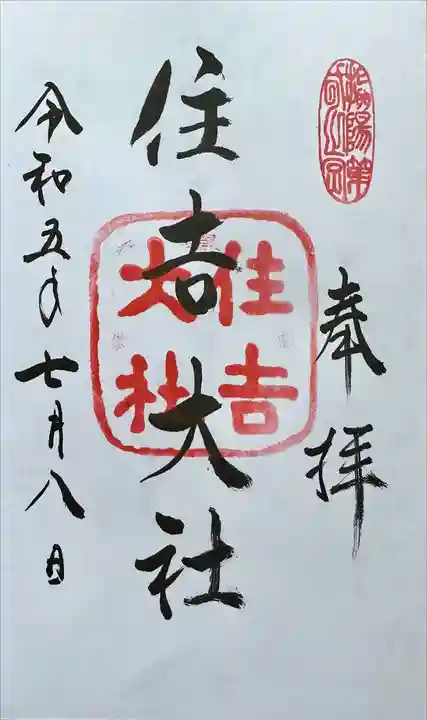 奉拝
住吉大社
住吉
大社
令和五年七月八日